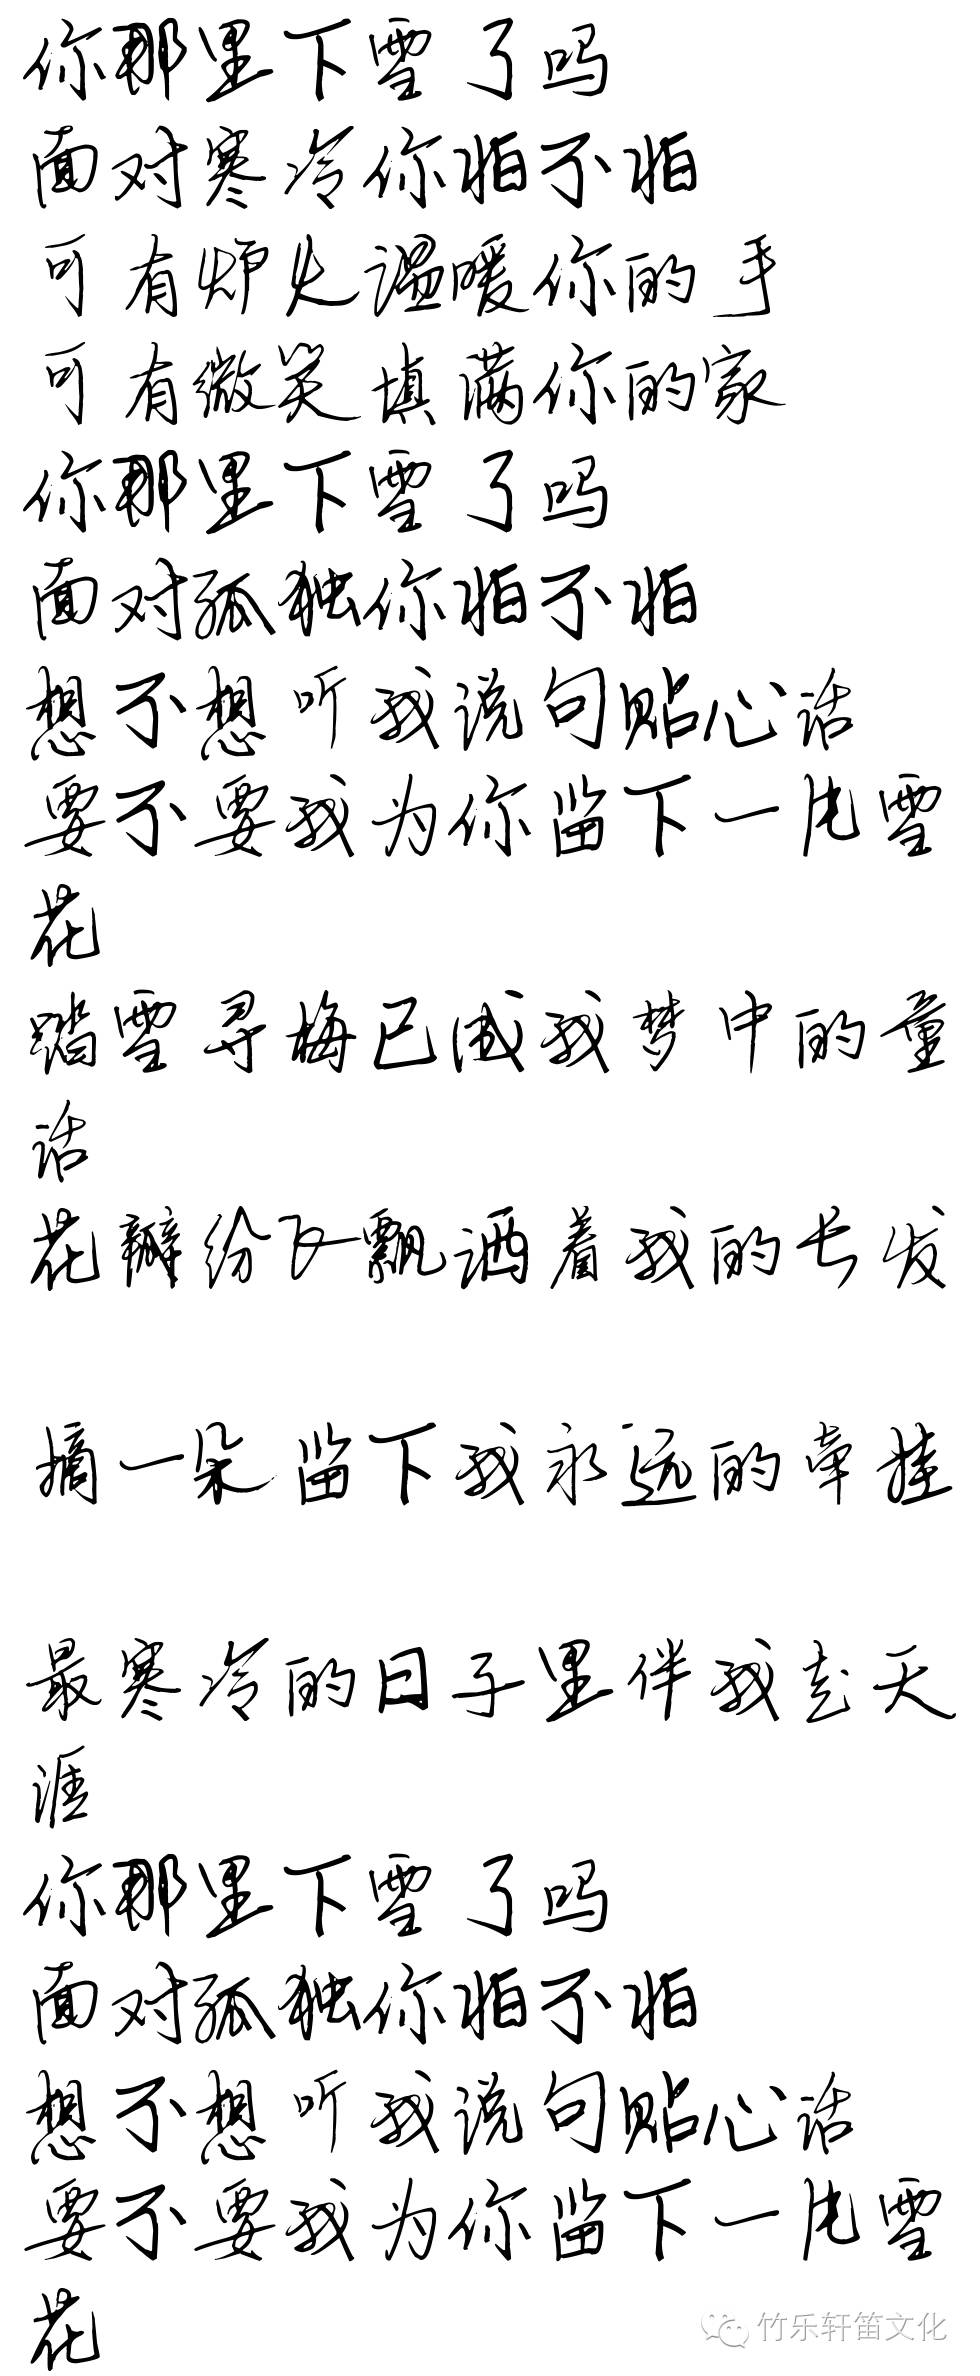 你那里下雪了吗
面对寒冷你怕不怕
可有炉火温暖你的手
可有微笑填满你的家
你那里下雪了吗
面对孤独你怕不怕
想不想听我说句贴心话
要不要我为你留下一片雪
花
踏雪寻梅已成我梦中的童
话
花瓣纷飞飘洒着我的长发
摘一朵留下我永远的牵挂
最寒冷的日子里伴我走天
涯
你那里下雪了吗
面对孤独你怕不怕
想不想听我说句贴心话
要不要我为你留下一片雪
花
竹乐轩笛文化